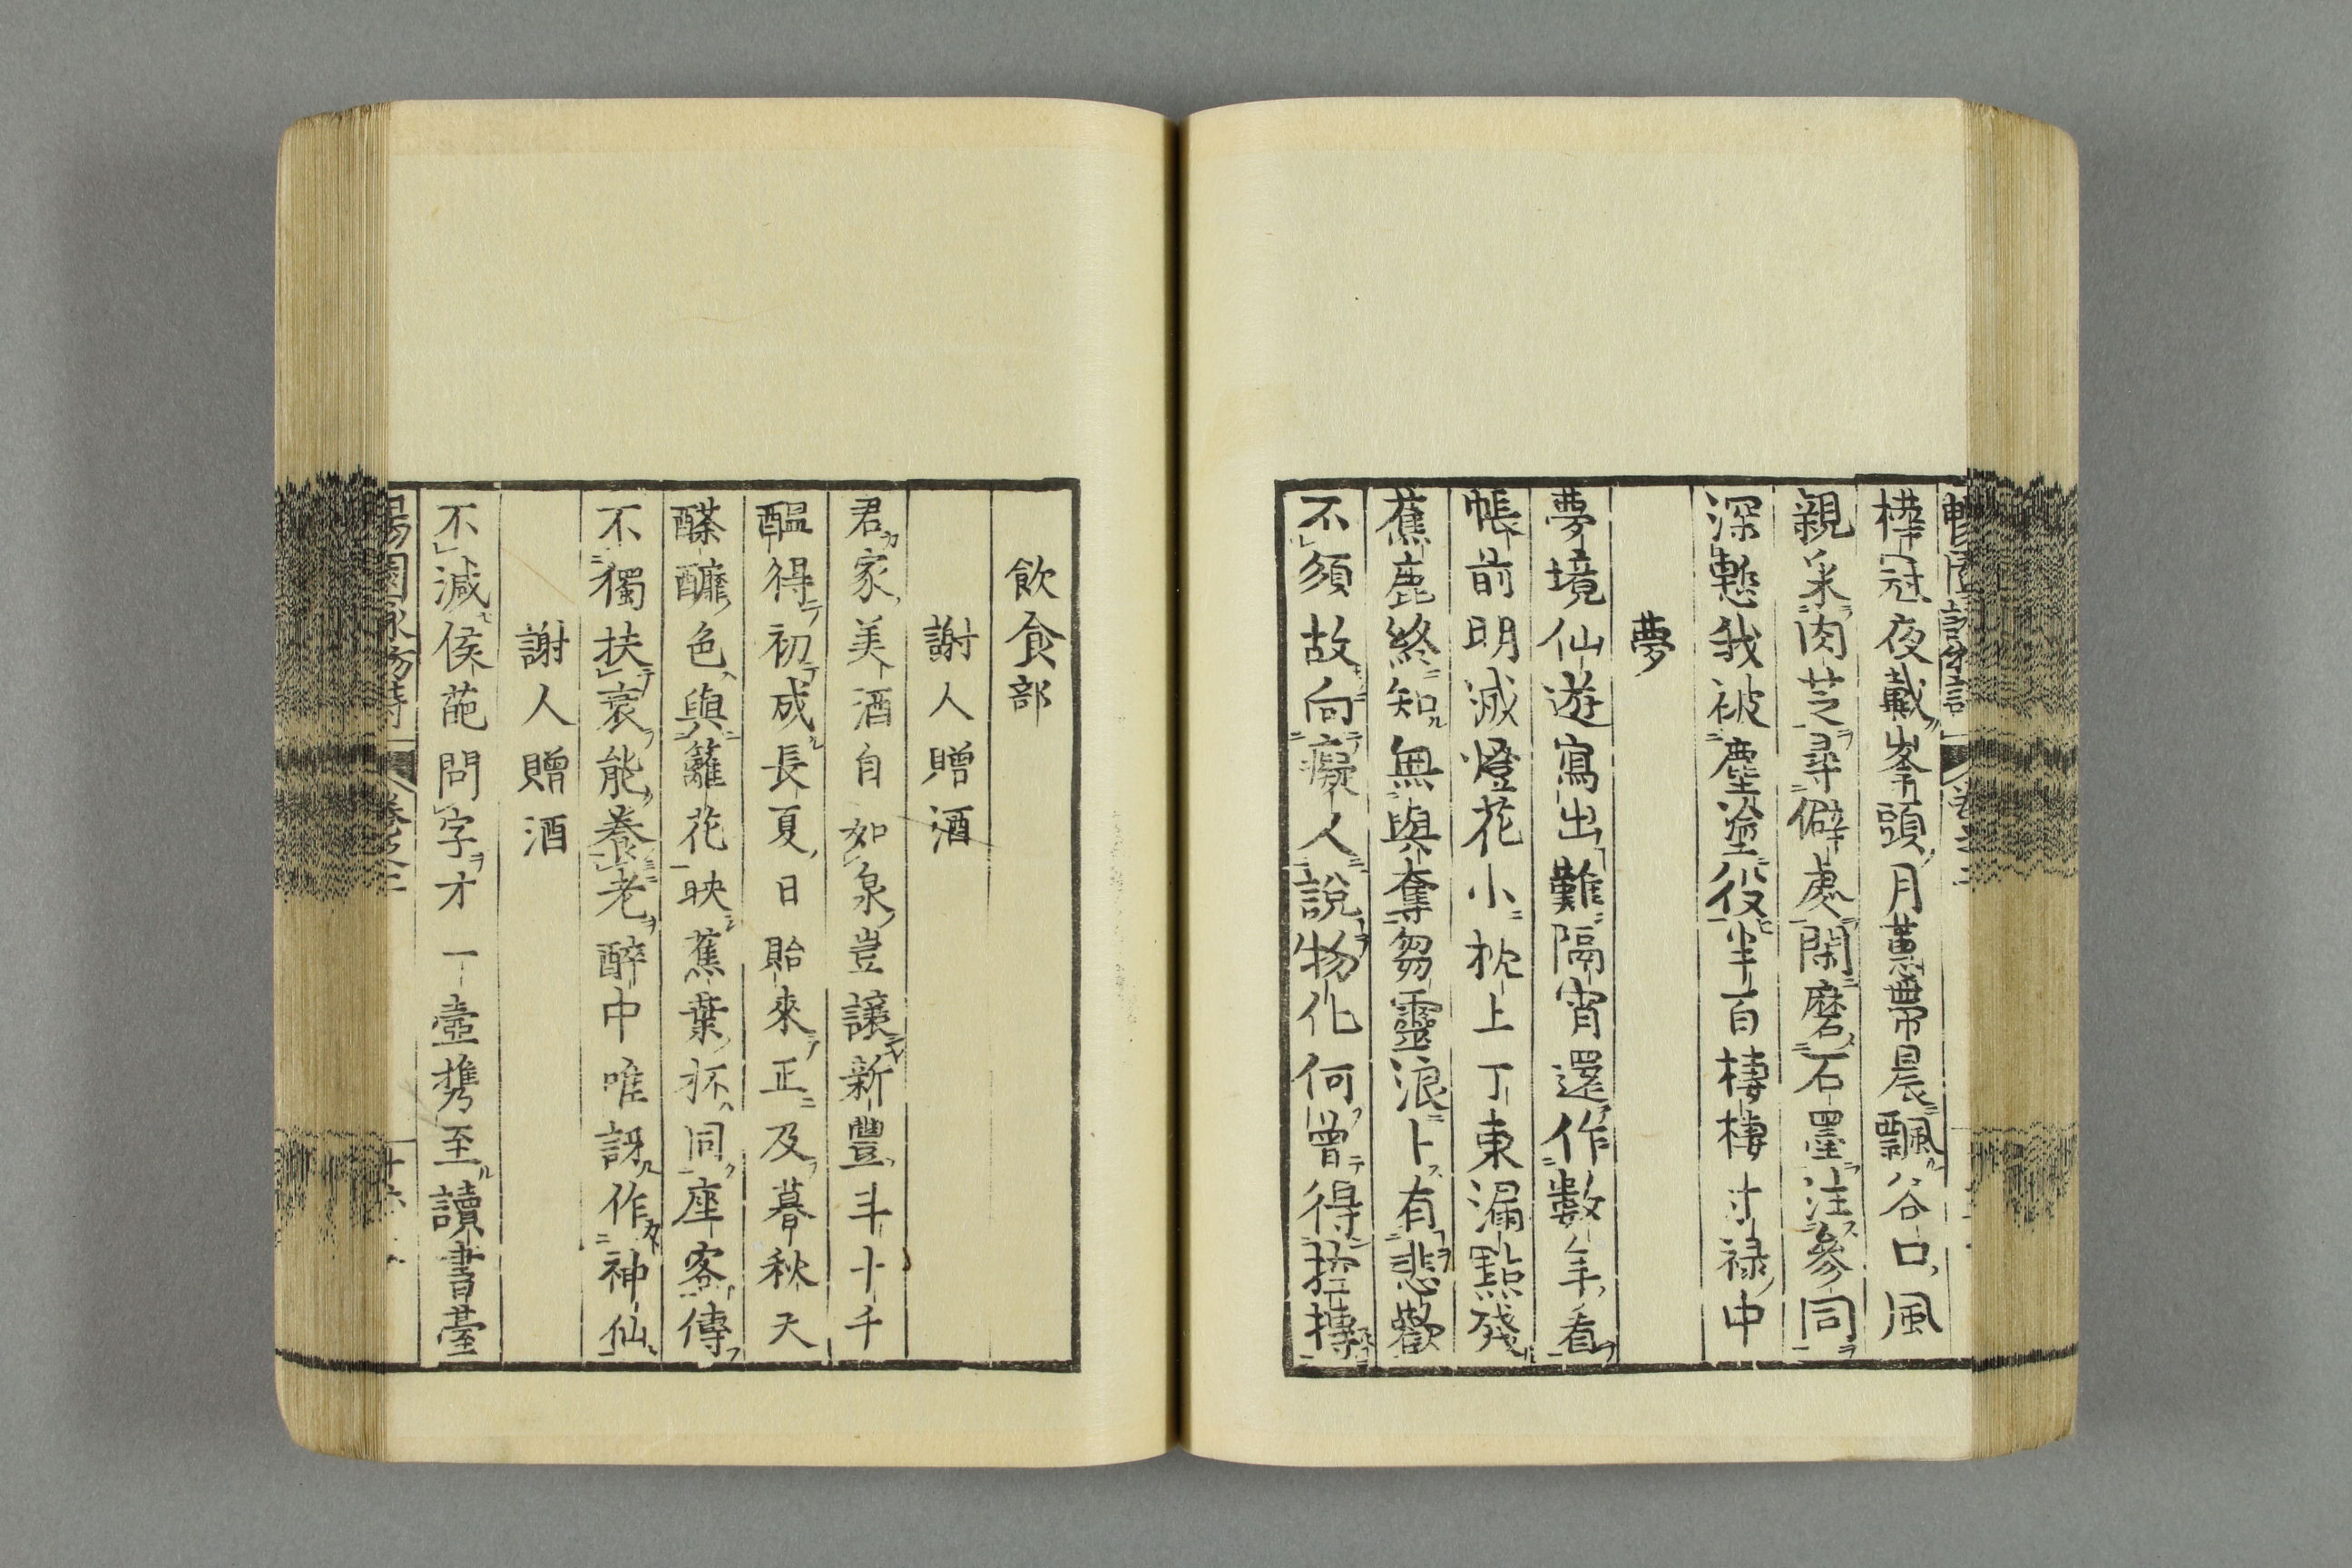 樺冠夜戴峯頭月蕙帶晨飄谷口風
親采肉芝尋僻處閑磨石墨注參同
深慙我被塵塗役半百棲棲寸祿中
夢
夢境仙遊寫出難隔宵還作數年看
帳前明滅燈花小枕上丁東漏點殘
蕉鹿終知無與奪芻靈浪卜有悲歡
不須故向癡人說物化何曾得控摶
飲食部
謝人贈酒
君家美酒自如泉豈讓新豐斗十千
醖得初成長夏日貽來正及暮秋天
醾色與籬花映蕉葉杯同座客傳
不獨扶衰能養老醉中唯訝作神仙
謝人贈酒
不減侯葩問字才一壺携至讀書臺